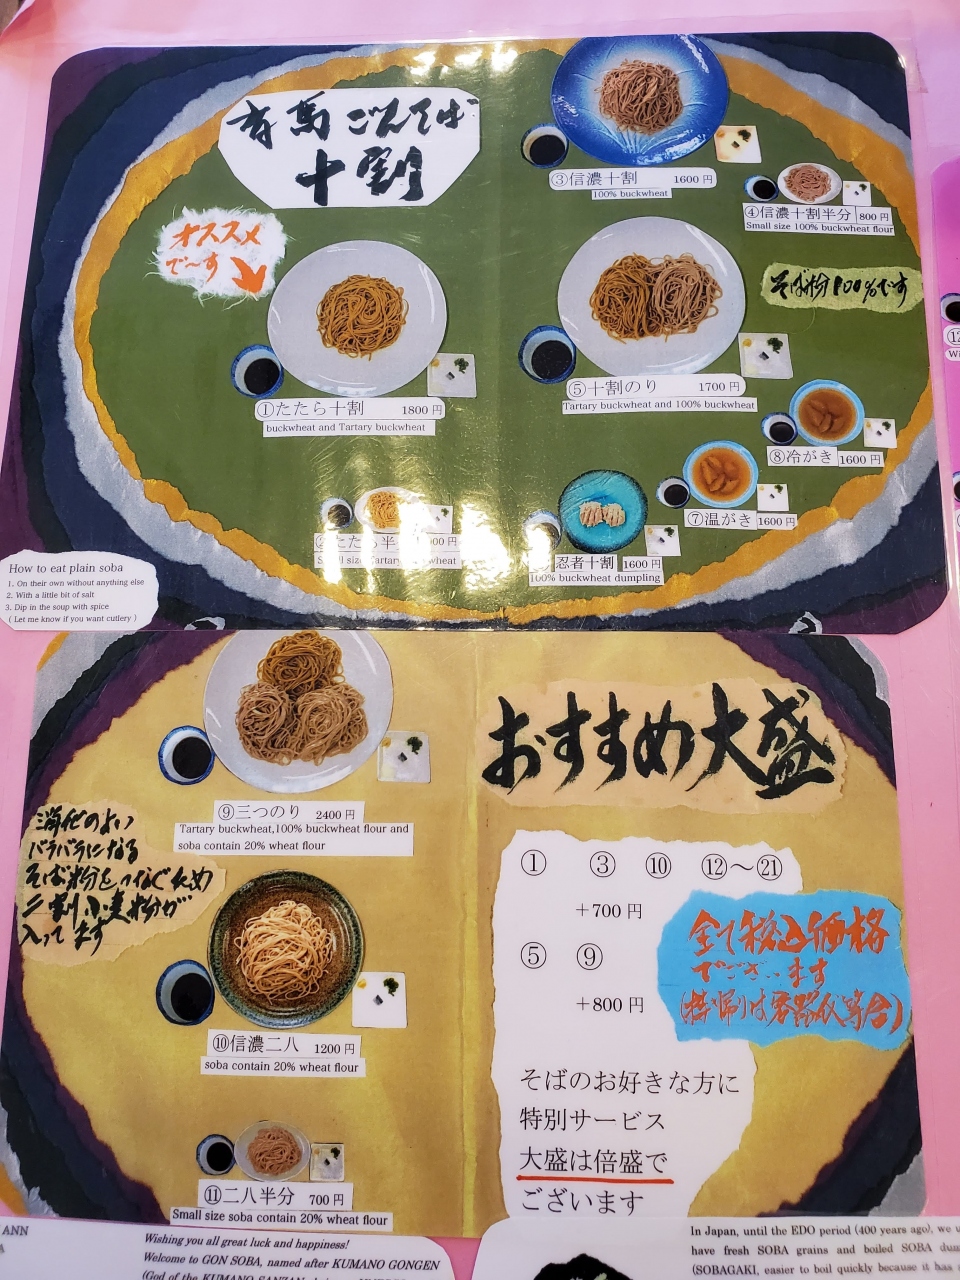 有馬ごんそば
十割
オススメ
で〜す
①たたら十割 1800円
buckwheat and Tartary buckwheat
③信濃十割 1600円
100% buckwheat
④信濃十割半分 800円
Small size 100% buckwheat flour
そば粉100%です
⑤十割のり 1700円
Tartary buckwheat and 100% buckwheat
⑧冷がき 1600円
⑦温がき 1600円
忍者十割 1600円
100% buckwheat dumpling
たたら半
Small size Tartary buckwheat
How to eat plain soba
1. On their own without anything else
2. With a little bit of salt
3. Dip in the soup with spice
( Let me know if you want cutlery )
⑨三つのり 2400円
Tartary buckwheat,100% buckwheat flour and
soba contain 20% wheat flour
消化のよい
バラバラになる
そば粉をつなぐため
二割小麦粉が
入ってます
⑩信濃二八 1200円
soba contain 20% wheat flour
⑪二八半分 700円
Small size soba contain 20% wheat flour
おすすめ大盛
① ③ ⑩ ⑫〜㉑
+700円
⑤ ⑨
+800円
全て税込価格
でございます
そばのお好きな方に
特別サービス
大盛は倍盛で
ございます
ANN
Wishing you all great luck and happiness!
Welcome to GON SOBA, named after KUMANO GONGEN
(God of the KUMANO SANZAN
In Japan, until the EDO period (400 years ago), we u
have fresh SOBA grains and boiled SOBA dum
(SOBAGAKI, easier to boil quickly because it has